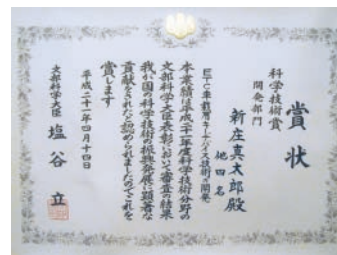 賞状
科学技術賞
開発部門
新庄真太郎殿
他四名
本業績は平成二十一年度科学技術分野の
文部科学大臣表彰において審査の結果
我が国の科学技術の振興発展に顕著な
貢献をされたと認められましたのでこれを
賞します
平成二十一年四月十四日
文部科学大臣 塩谷立